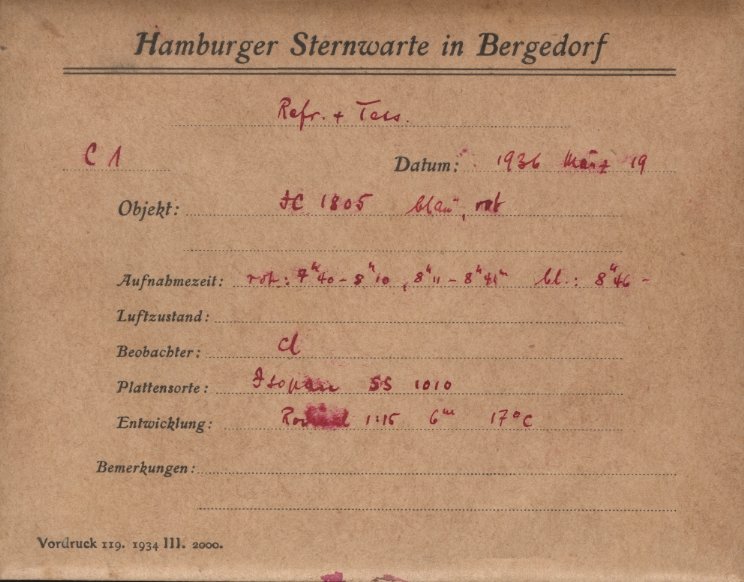 Hamburger Sternwarte in Bergedorf
Refr. + Tess.
C 1 Datum: 1936 März 19
Objekt: IC 1805 blau, rot
Aufnahmezeit: rot: 7h40 - 8h10, 8h11 - 8h41m bl.: 8h46 -
Luftzustand:
Beobachter:
Plattensorte: Isopan SS 1010
Entwicklung: 1:15 6m 17°C
Bemerkungen:
Vordruck 119. 1934 III. 2000.